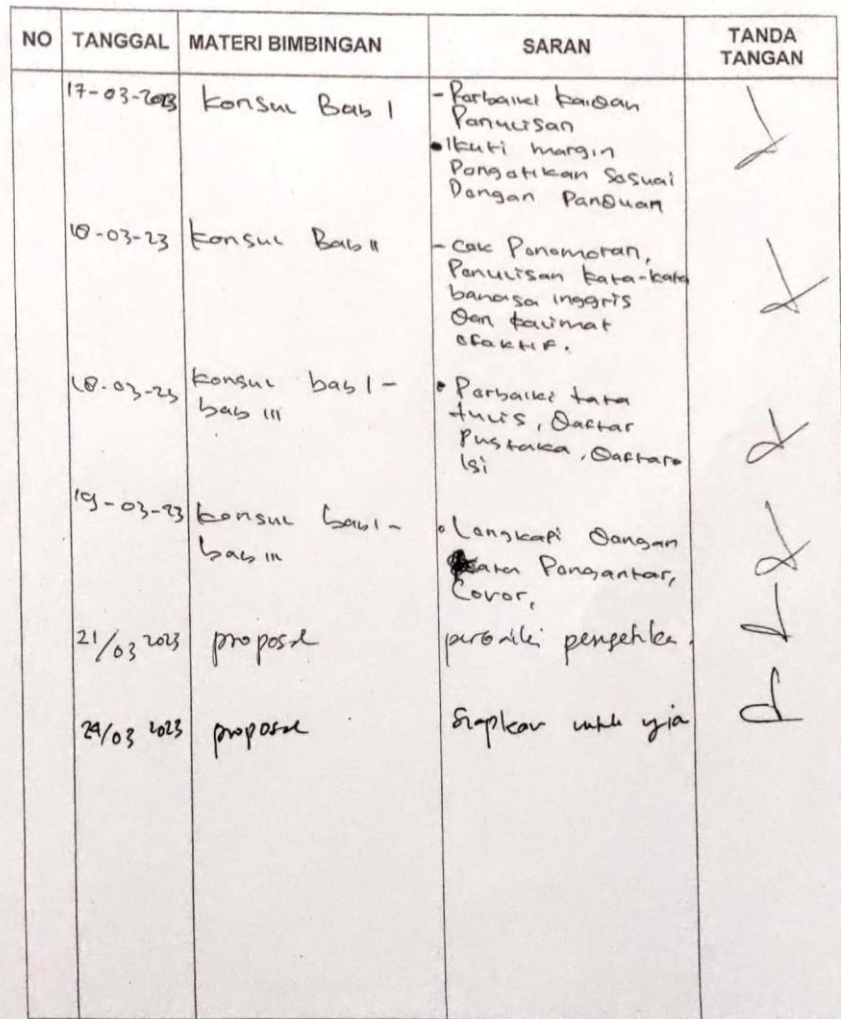 NO TANGGAL MATERI BIMBINGAN SARAN TANDA TANGAN
17-03-2023 Konsul Bab I - Perbaiki kaidan
Penulisan
• Ikuti margin
Pengetikan Sesuai
Dengan Panduan
18-03-23 Konsul Bab II - Cek Penomoran,
Penulisan kata-kata
bahasa inggris
dan kalimat
efektif.
18-03-23 Konsul bab I - • Perbaiki tata
bab III tulis, Daftar
Pustaka, Daftar
Isi
19-03-23 Konsul bab I - • Lengkapi dengan
bab III Kata Pengantar,
Cover,
21/03 2023 proposal perbaiki pengetika.
/03 2023 proposal Siapkan untuk ujia